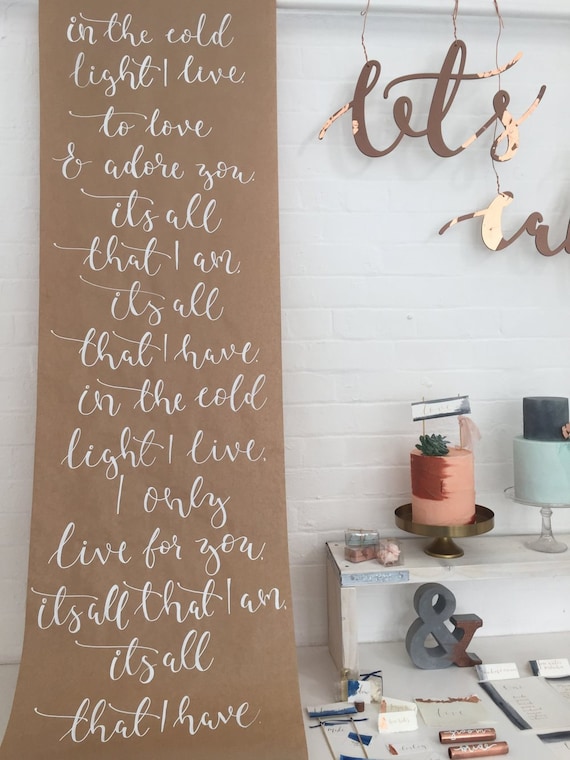 in the cold
light I live.
to love
& adore you.
its all
that I am.
its all
that I have.
in the cold
light I live.
I only
live for you.
its all that I am.
its all
that I have.
lets
love
&
love
groom
bride